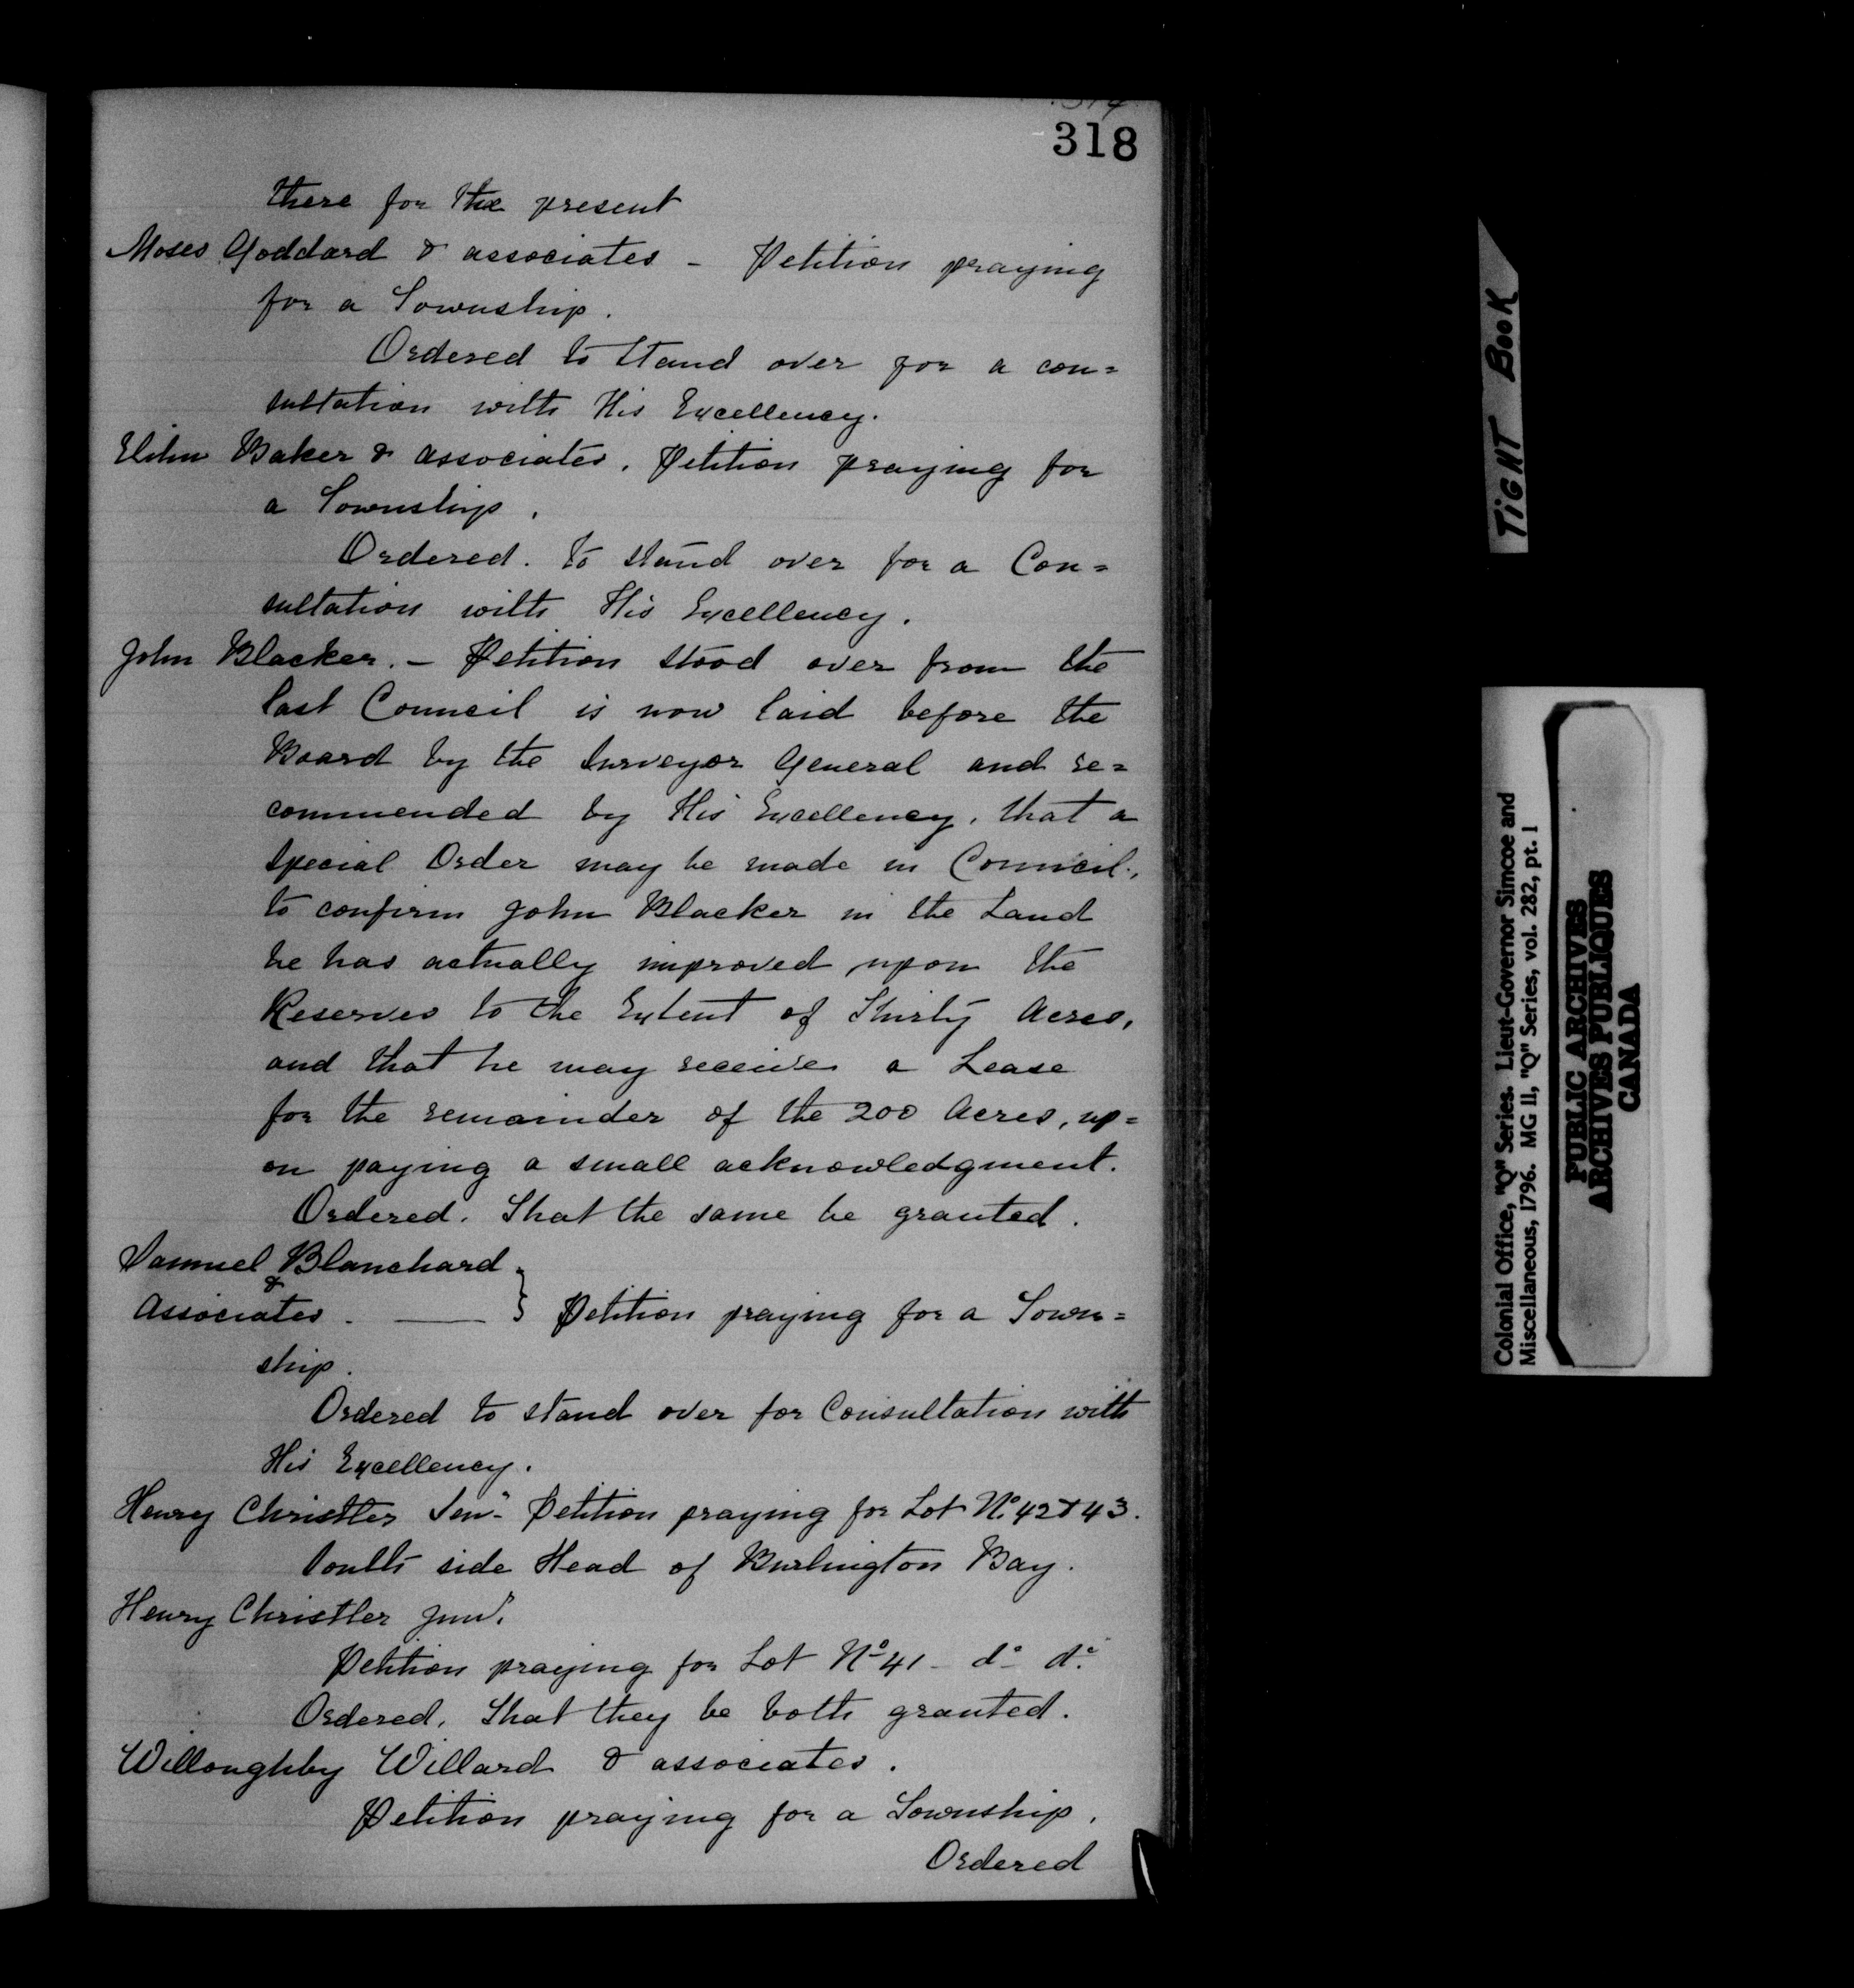 318
there for the present
Moses Goddard & associates - Petition praying
for a Township.
Ordered to stand over for a con=
sultation with His Excellency.
Elihu Baker & associates. Petition praying for
a Township.
Ordered. to stand over for a Con=
sultation with His Excellency.
John Blacker. - Petition stood over from the
last Council is now laid before the
Board by the Surveyor General and re=
commended by His Excellency, that a
special Order may be made in Council,
to confirm John Blacker in the Land
he has actually improved upon the
Reserves to the Extent of Thirty Acres,
and that he may receive a Lease
for the remainder of the 200 Acres, up=
on paying a small acknowledgment.
Ordered. That the same be granted.
Samuel Blanchard
&
Associates. } Petition praying for a Town=
ship.
Ordered to stand over for Consultation with
His Excellency.
Henry Christler Senr. Petition praying for Lot No. 42 & 43.
South side Head of Burlington Bay.
Henry Christler Junr.
Petition praying for Lot No 41 - do do.
Ordered. That they be both granted.
Willoughby Willard & associates.
Petition praying for a Township.
Ordered
TIGHT BOOK
Colonial Office, "Q" Series. Lieut-Governor Simcoe and
Miscellaneous, 1796. MG 11, "Q" Series, vol. 282, pt. 1
PUBLIC ARCHIVES
ARCHIVES PUBLIQUES
CANADA